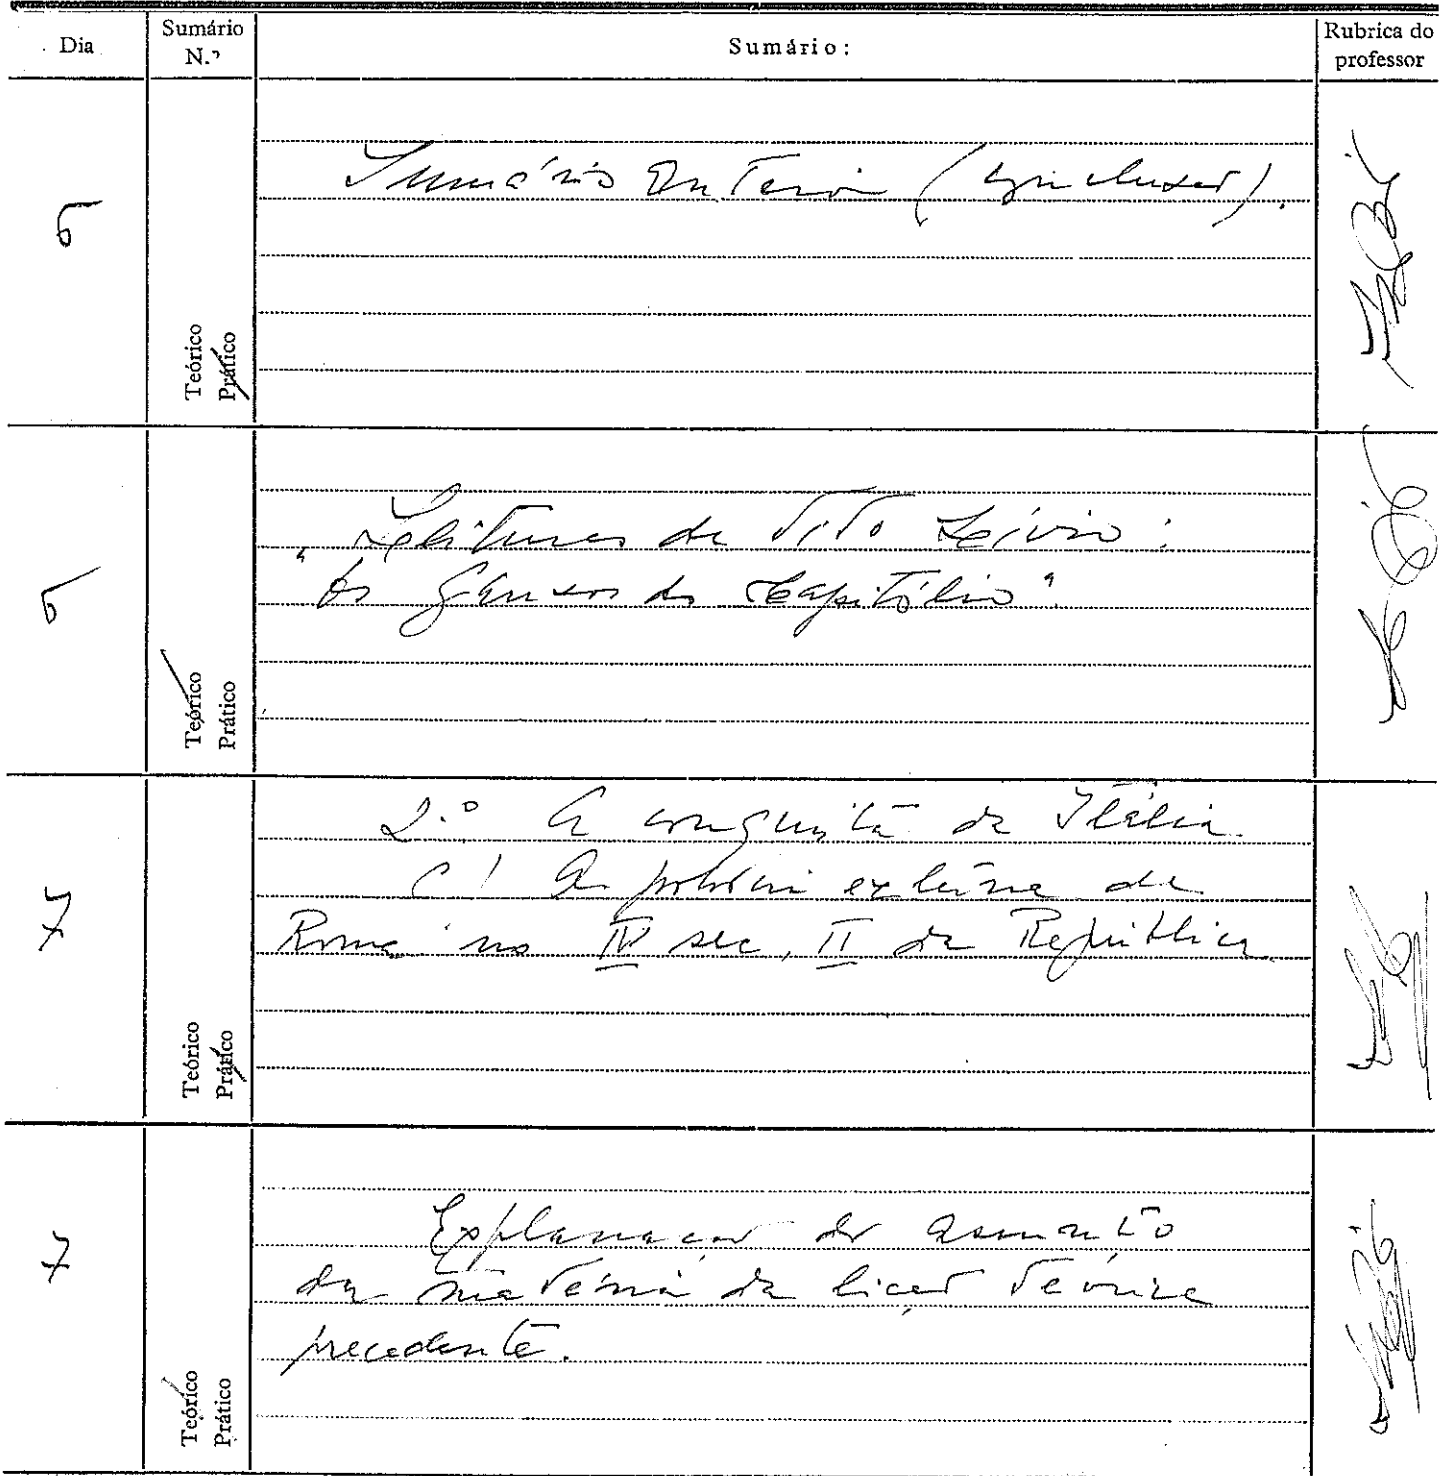 Dia
Sumário N.º
Sumário:
Rubrica do professor
5
Teórico
Prático
Sumário Anterior (conclusão).
5
Teórico
Prático
Leituras de Tito Lívio:
"Os gansos do Capitólio".
7
Teórico
Prático
2.º A conquista da Itália
C) A política externa de
Roma no IV séc, II da República.
7
Teórico
Prático
Explanação do assunto
da matéria da lição teórica
precedente.